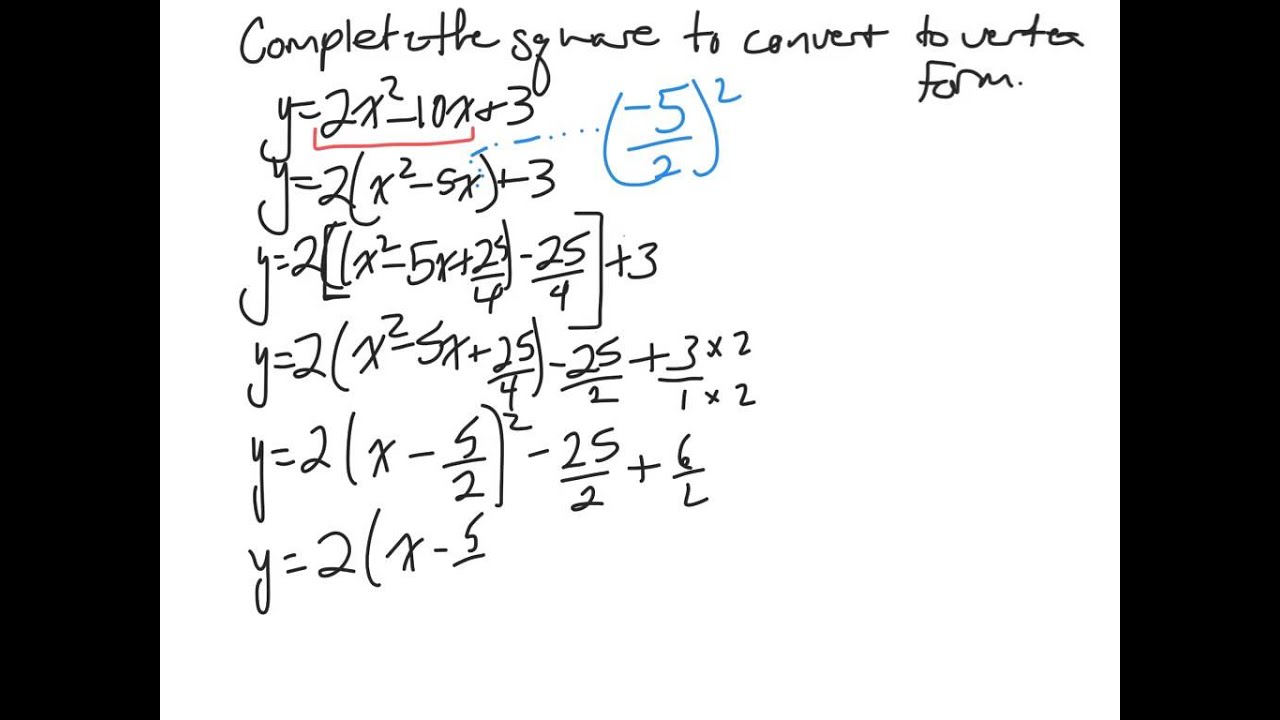 Complete the square to convert to vertex
form.
y=2x²-10x+3
(-5/2)²
y=2(x²-5x)+3
y=2[(x²-5x+25/4)-25/4]+3
y=2(x²-5x+25/4)-25/2+3×2/1×2
y=2(x-5/2)²-25/2+6/2
y=2(x-5/